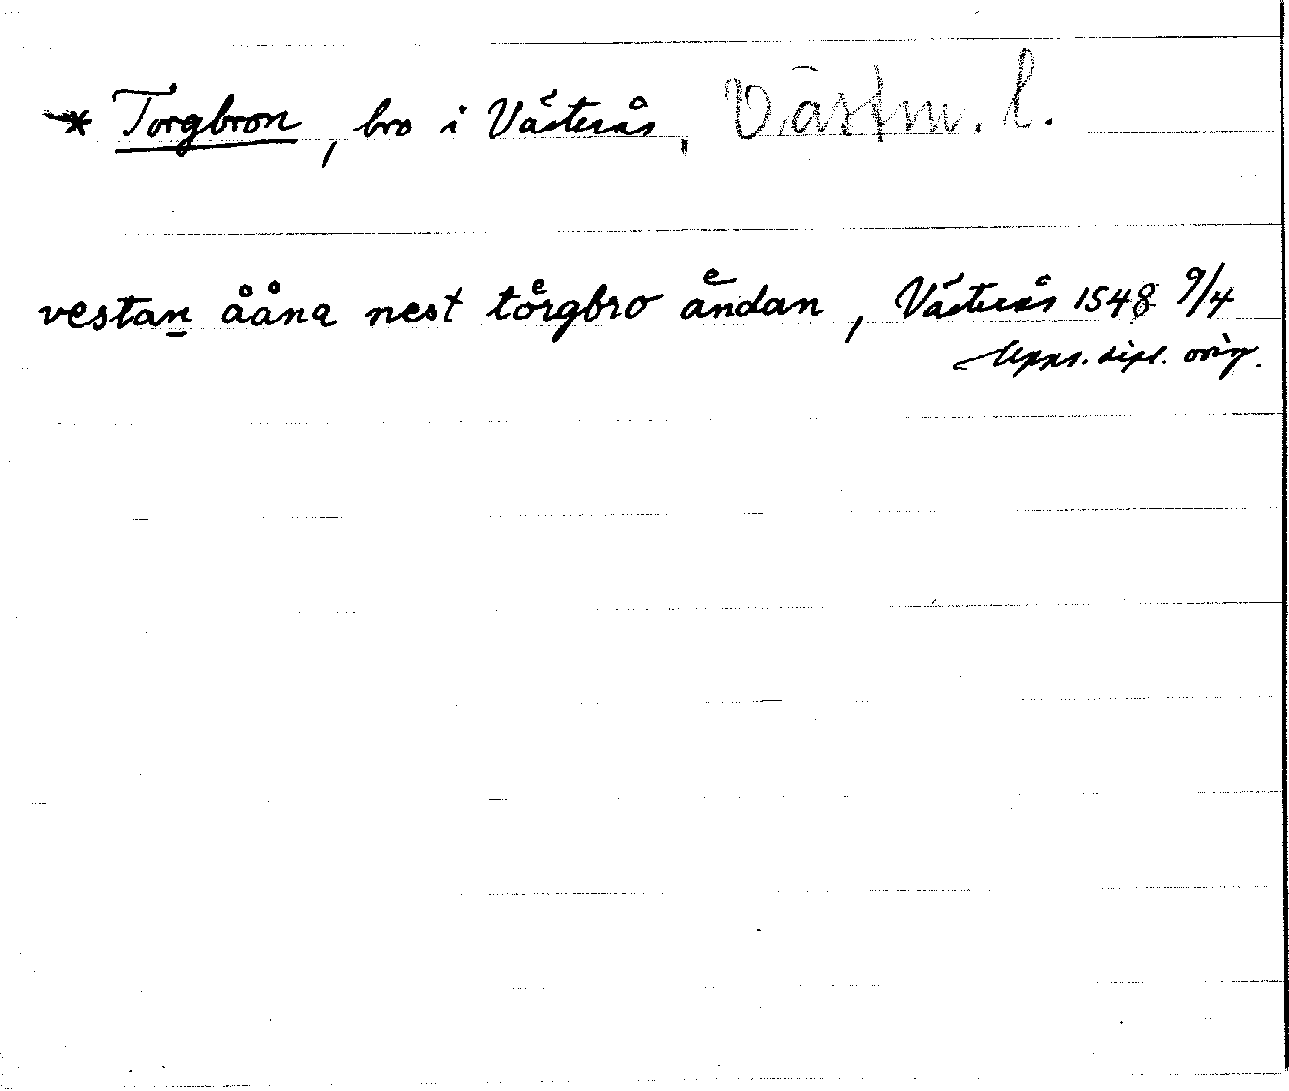 * Torgbron, bro i Västerås, Västm. l.
vestan ååna nest toͤrgbro aͤndan, Västerås 1548 9/4
Upps. dipl. orig.